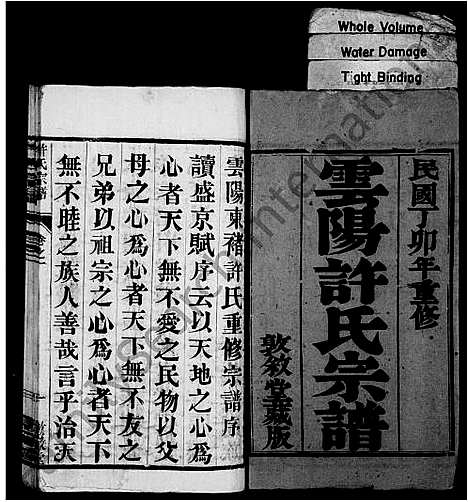 Whole Volume
Water Damage
Tight Binding
民國丁卯年重修
雲陽許氏宗譜
敦敘堂藏版
雲陽東褚許氏重修宗譜序
讀盛京賦序云以天地之心爲
心者天下無不愛之民物以父
母之心爲心者天下無不友之
兄弟以祖宗之心爲心者天下
無不睦之族人善哉言乎治天
許氏宗譜
卷之一